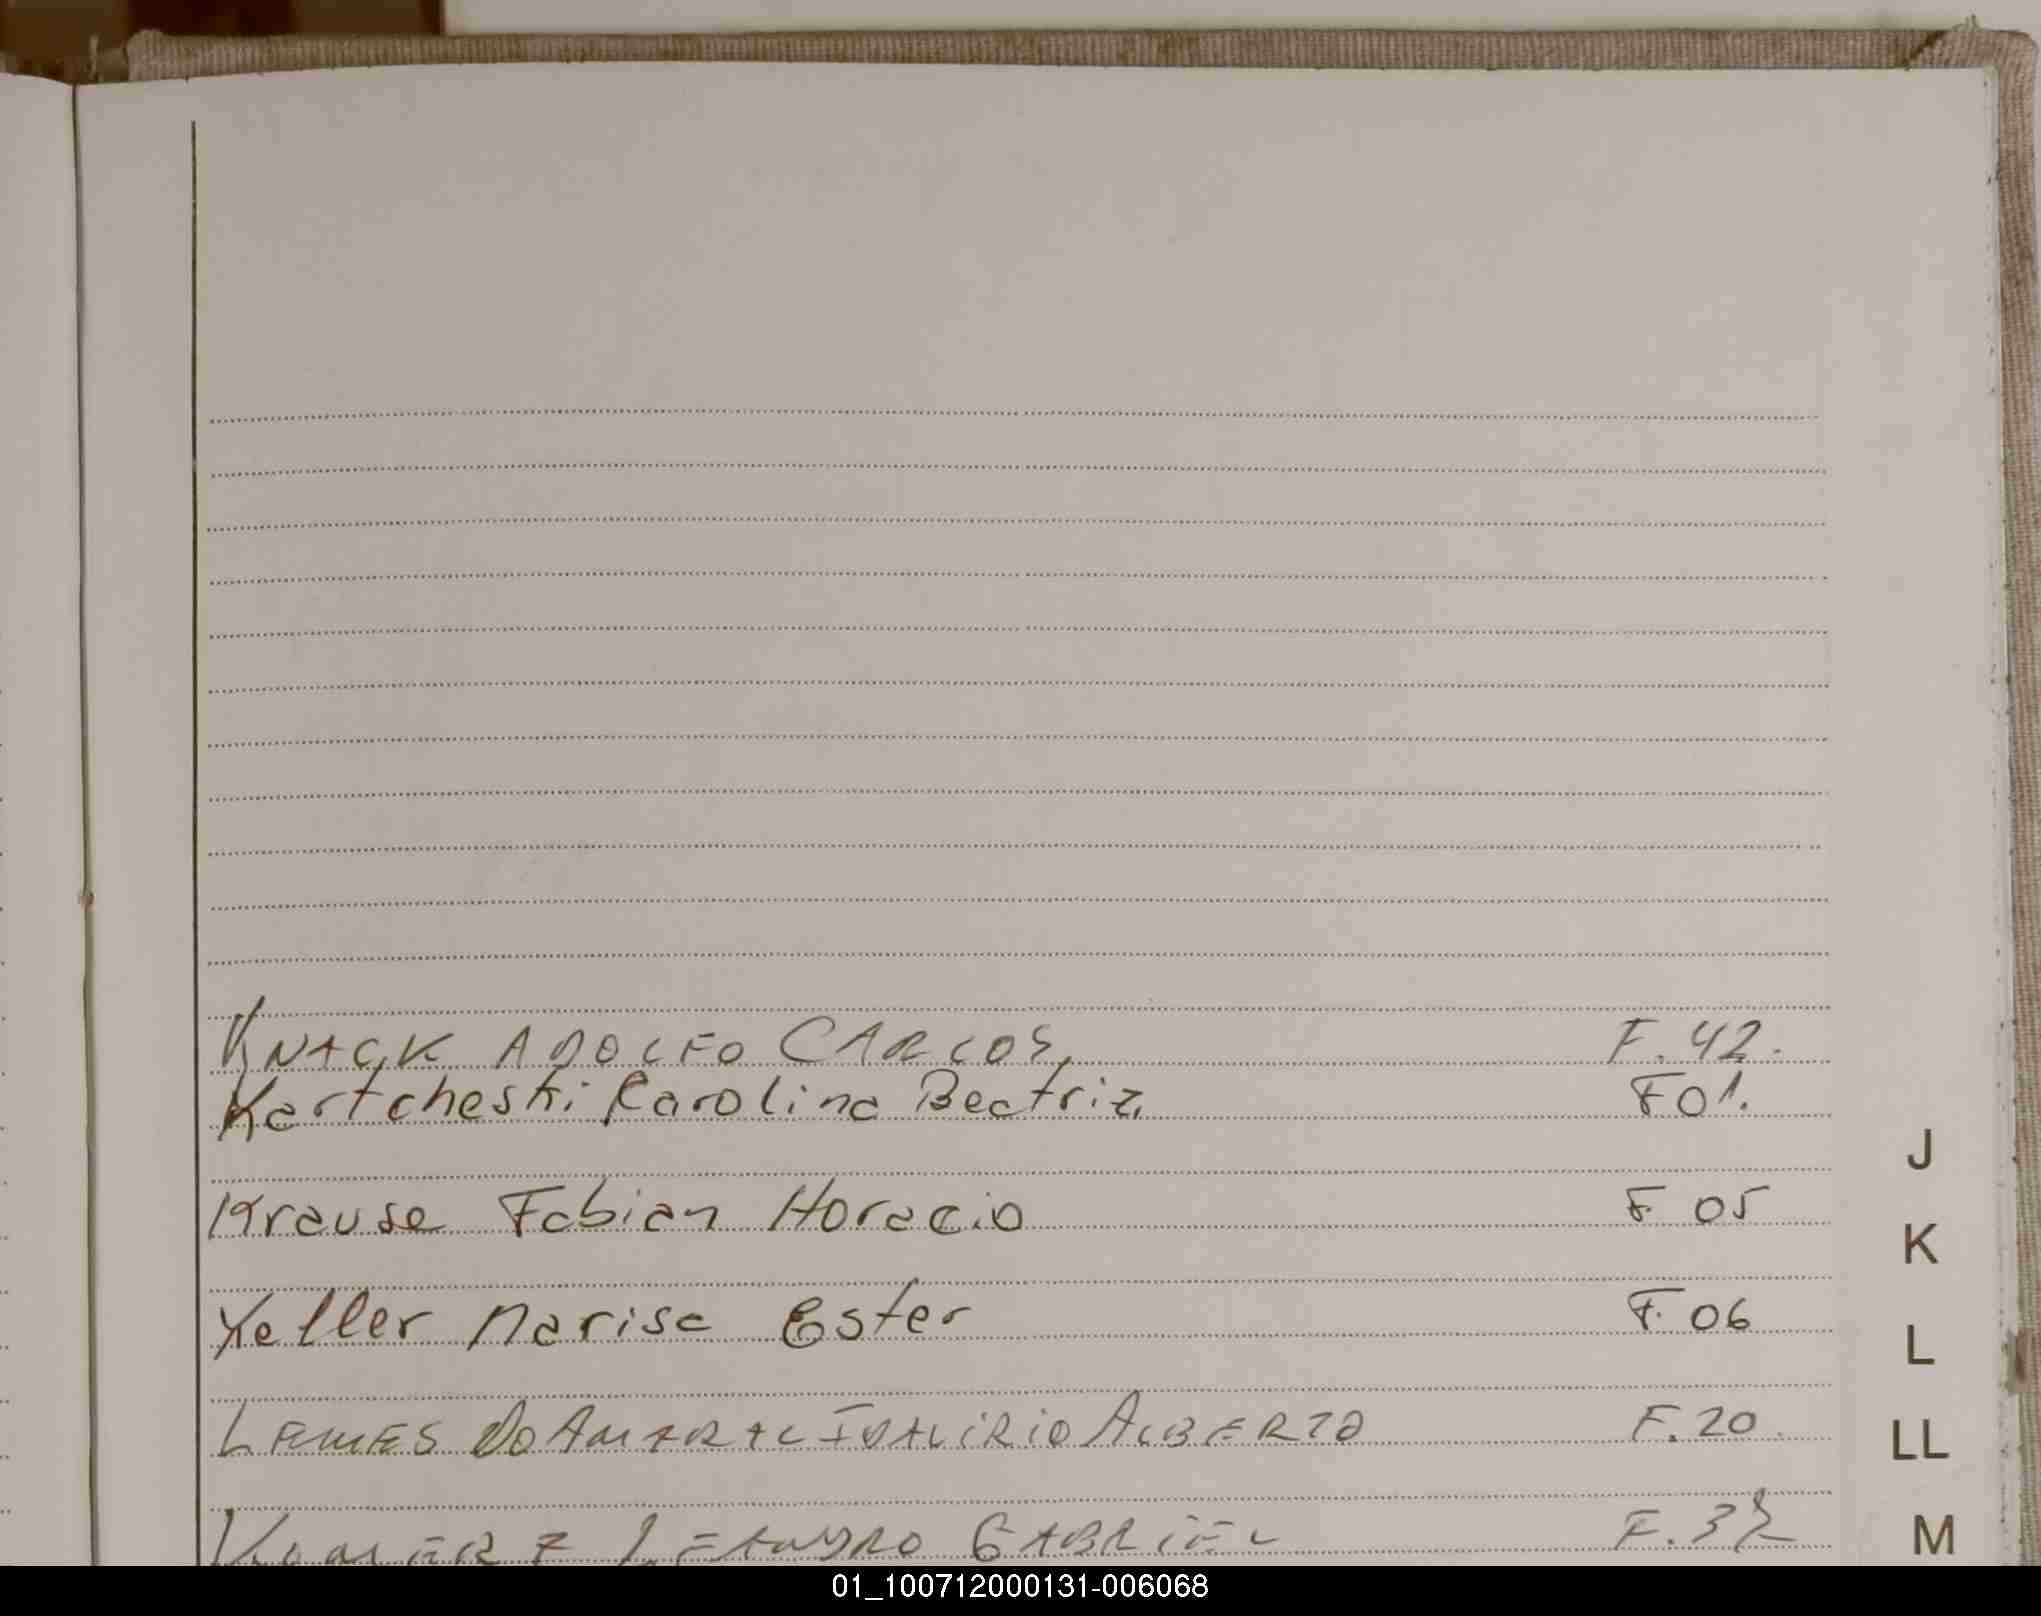 KNACK ADOLFO CARLOS F. 42.
Kartcheski Karolina Beatriz F 01.
J
Krause Fabian Horacio F 05
K
Keller Marisa Ester F. 06
L
LEMES DO AMARAL IDALIRIO ALBERTO F. 20
LL
LEANDRO GABRIEL
M
01_100712000131-006068